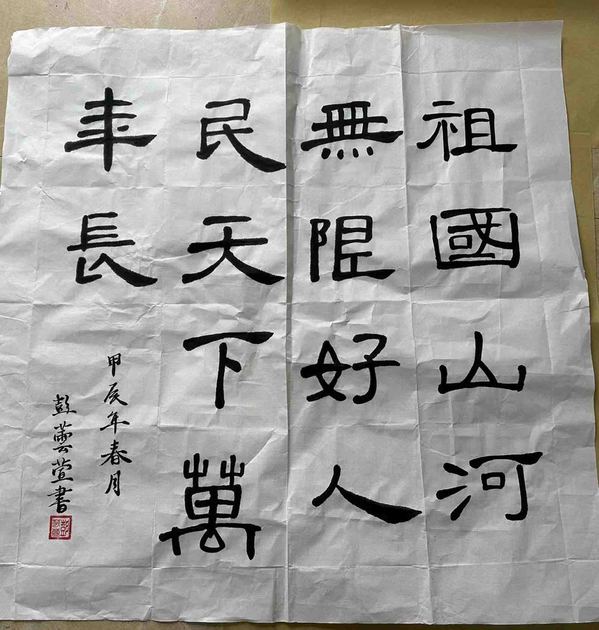 祖國山河
無限好人
民天下萬
年長
甲辰年春月
彭雲萱書